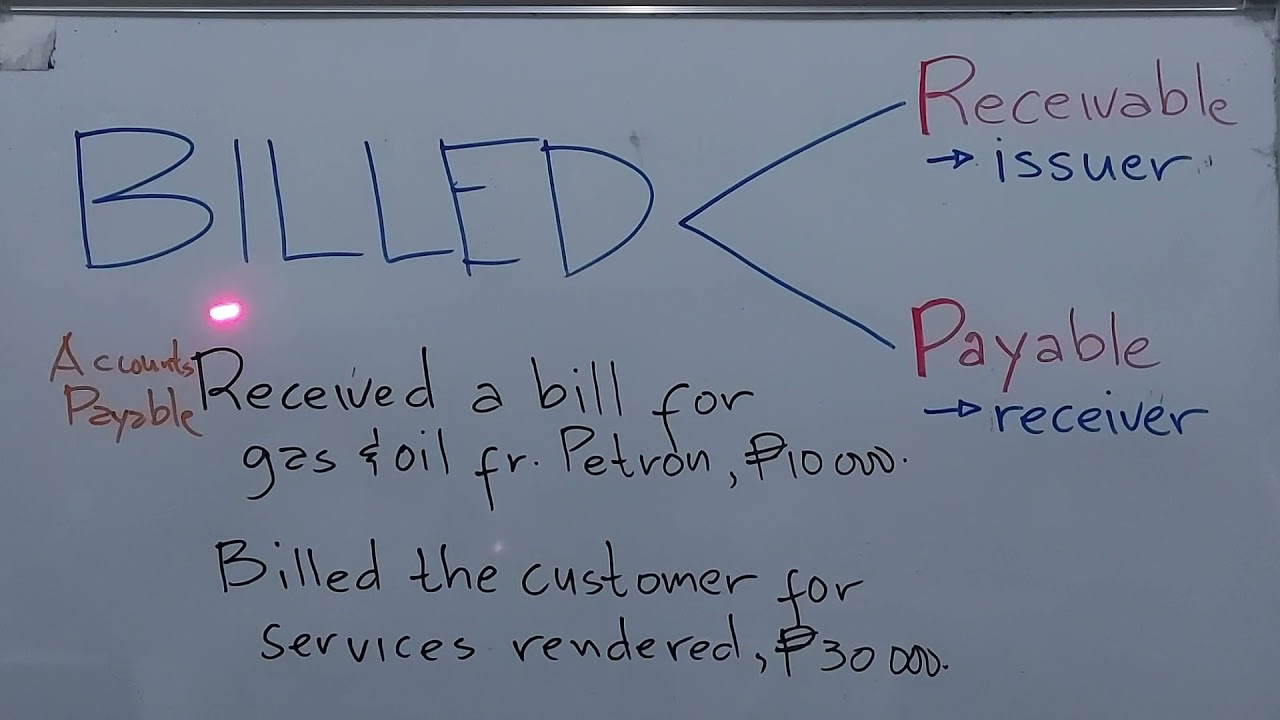 BILLED
Receivable
→ issuer
Payable
→ receiver
Accounts
Payable
Received a bill for
gas & oil fr. Petron, ₱10 000.
Billed the customer for
services rendered, ₱30 000.